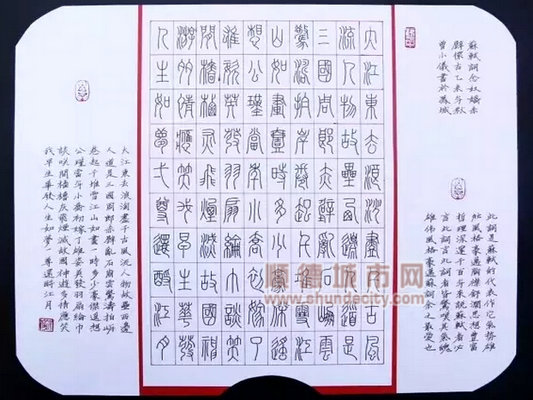 蘇軾詞念奴嬌赤
壁懷古乙未年秋
曾小儀書於鳳城
此詞是蘇軾的代表作它氣勢雄
壯風格豪邁胸襟舒濶思想豐富
哲理深邃千百年來說蘇軾者必
言此詞言此詞者皆驚嘆其氣魄
雄偉風格豪邁蘇詞余之最愛也
大江東去浪淘盡千古風
流人物故壘西邊人道是
三國周郎赤壁亂石崩雲
驚濤拍岸卷起千堆雪江
山如畫一時多少豪傑遙
想公瑾當年小喬初嫁了
雄姿英發羽扇綸巾談笑
間檣櫓灰飛煙滅故國神
遊多情應笑我早生華髮
人生如夢一尊還酹江月
大江東去浪淘盡千古風流人物故壘西邊
人道是三國周郎赤壁亂石崩雲驚濤拍岸
卷起千堆雪江山如畫一時多少豪傑遙想
公瑾當年小喬初嫁了雄姿英發羽扇綸巾
談笑間檣櫓灰飛煙滅故國神遊多情應笑
我早生華髮人生如夢一尊還酹江月
顺德城市网
www.shundecity.com